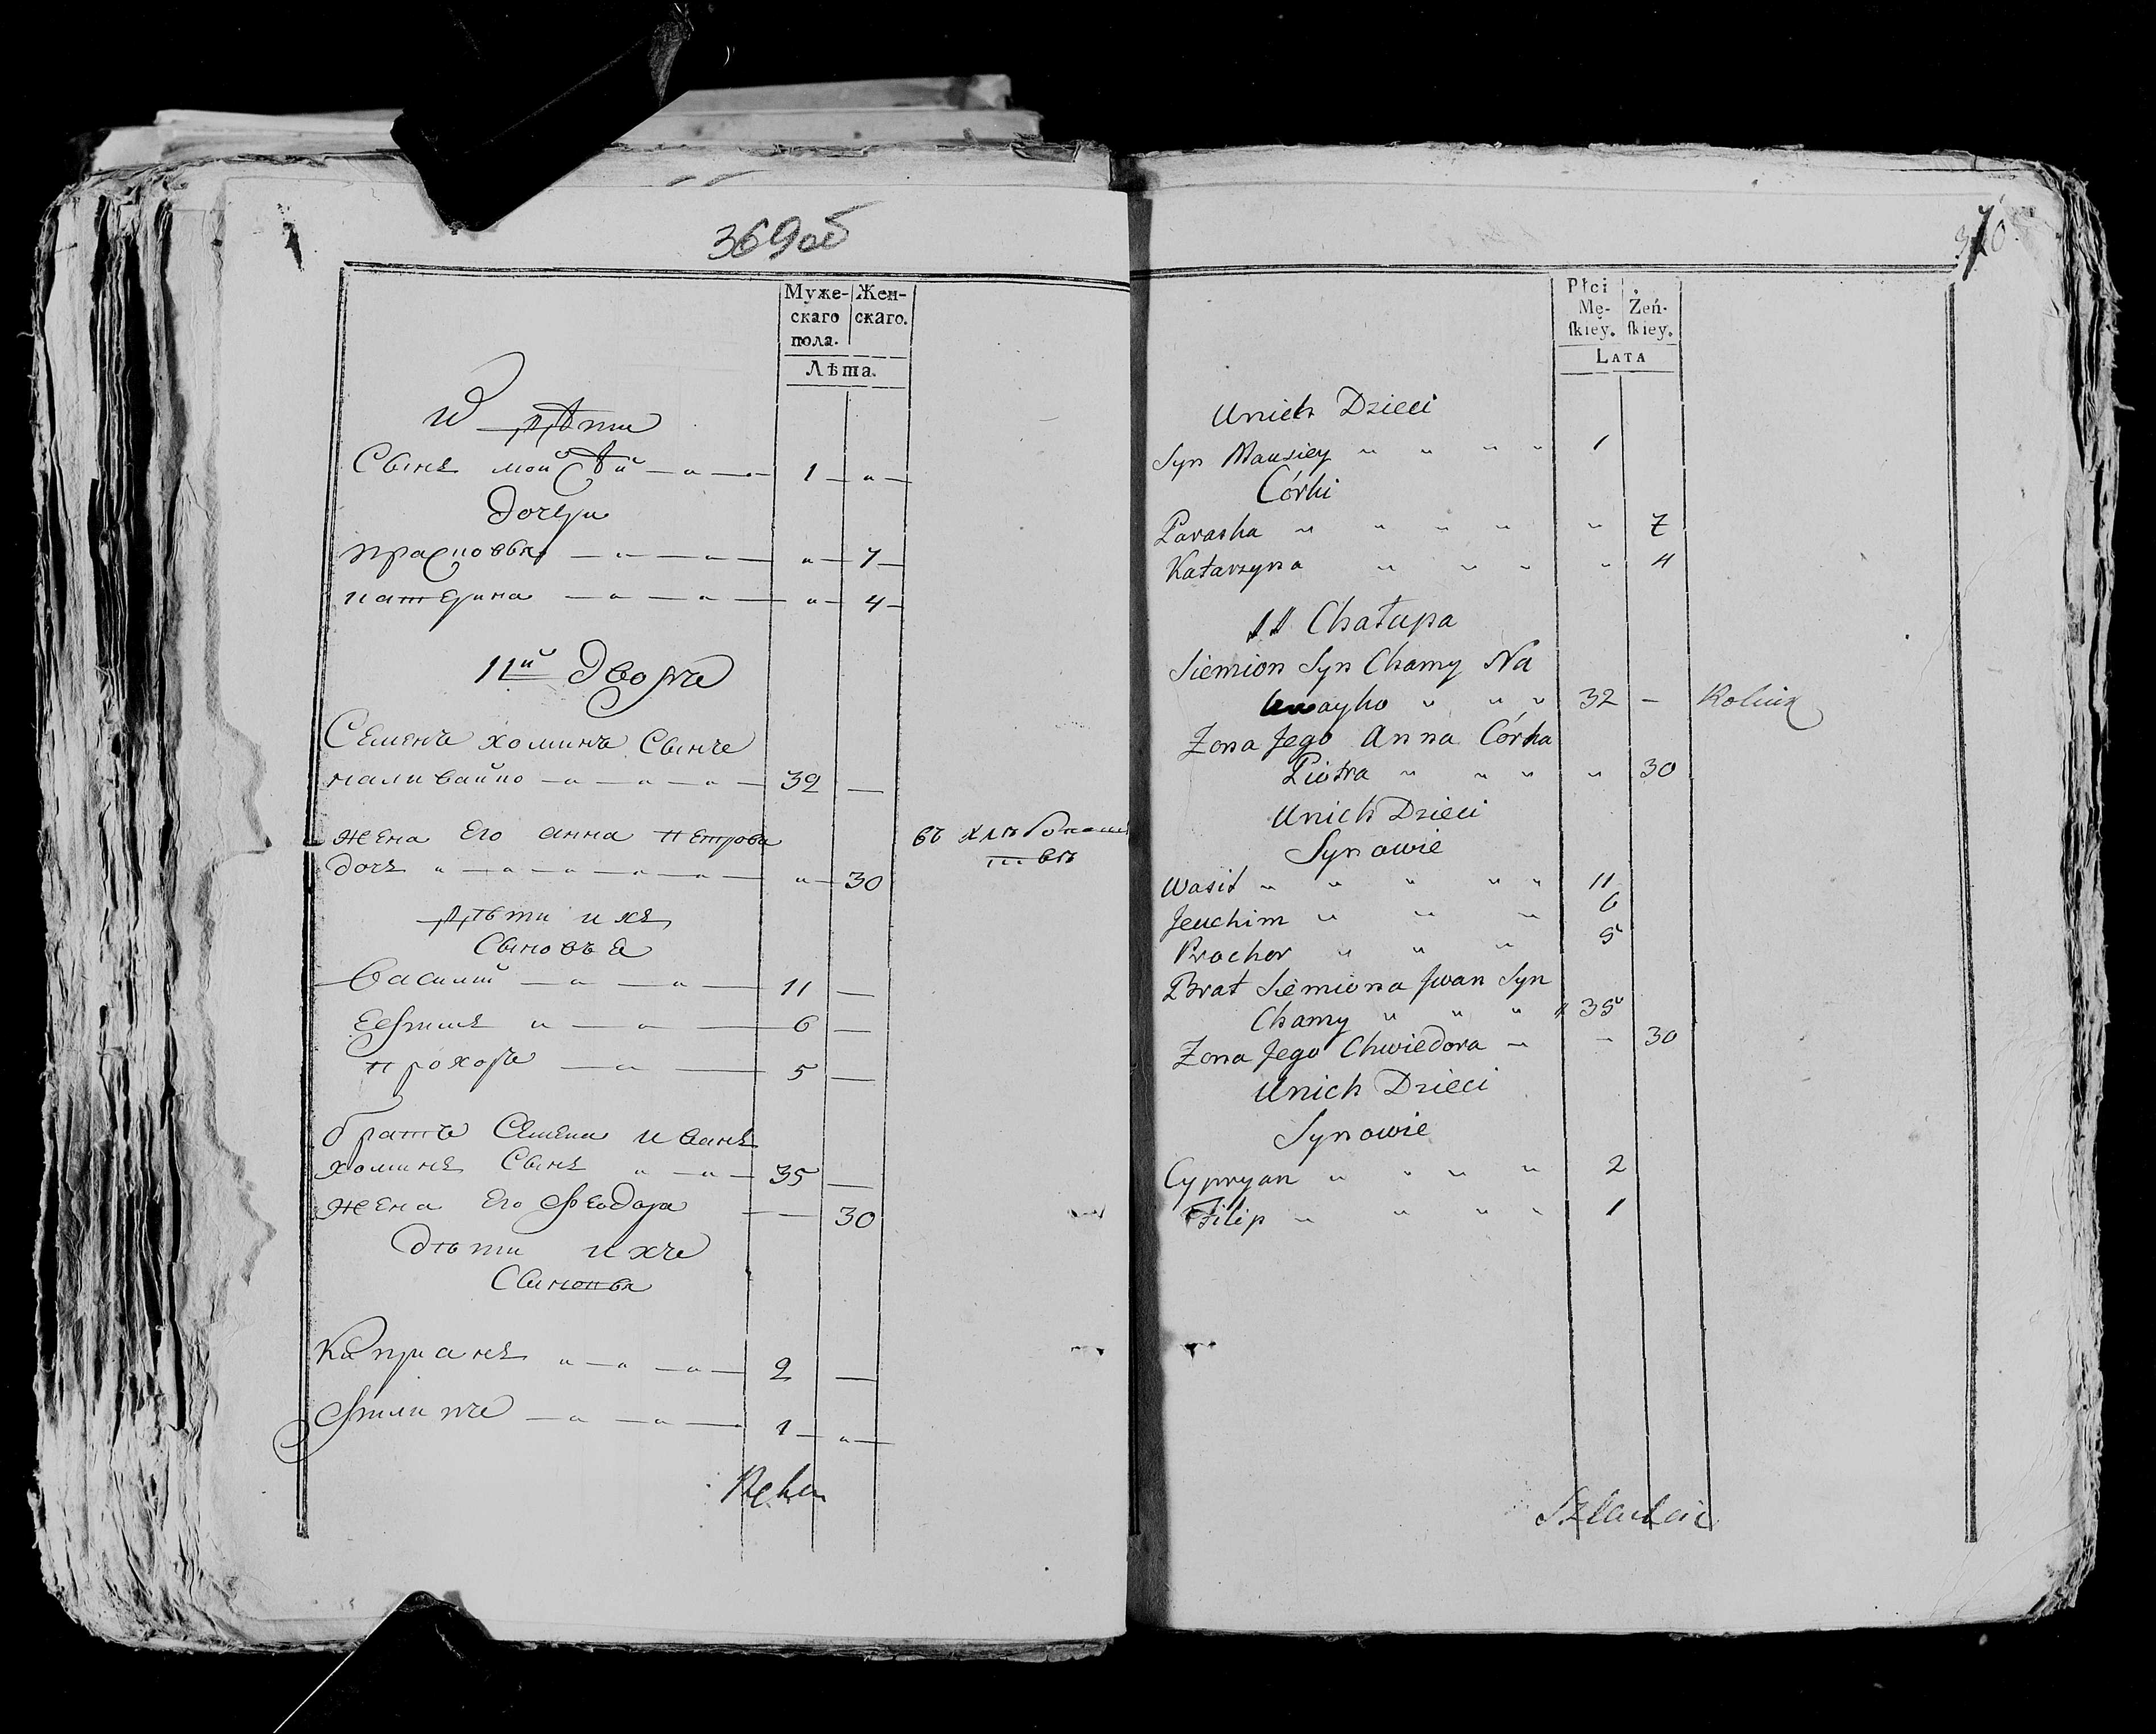 369об
Муже- Жен-
скаго скаго.
пола.
Лѣта.
И дѣти
Сынъ мойсѣй — „ — „ — 1 — „ —
дочери
прасковья — „ — „ — „ — 7 —
катерина — „ — „ — „ — 4 —
11й дворъ
Семенъ хоминъ Сынъ
наливайко — „ — „ — „ — 32 —
жена Его анна петрова
дочь „ — „ — „ — „ — „ — „ — 30
въ хлѣбопаш
ствѣ
дѣти ихъ
Сыновья
Василий — „ — „ — 11 —
Ефимъ „ — „ — 6 —
прохоръ — „ — 5 —
братъ Семена иванъ
хоминъ Сынъ „ — „ — 35 —
жена Его феодора — — 30
дѣти ихъ
Сыновья
Киприанъ „ — „ — „ — 2 —
филипъ — „ — „ — 1 — „ —
370
Płci
Mę- Żeń-
ſkiey. ſkiey.
LATA
Unich Dzieci
Syn Mausiey „ „ „ „ 1
Córki
Paraska „ „ „ „ „ 7
Katarzyna „ „ „ „ 4
11 Chałupa
Siemion Syn Chamy Na
32 — Rolnik
Zona Jego Anna Córka
Piotra „ „ „ „ 30
Unich Dzieci
Synowie
Wasil „ „ „ „ „ 11
Jeuchim „ „ „ 6
Prochor „ „ „ 5
Brat Siemiona Jwan Syn
Chamy „ „ „ 35
Zona Jego Chwiedora — — 30
Unich Dzieci
Synowie
Cypryan „ „ „ „ 2
Filip „ „ „ „ 1